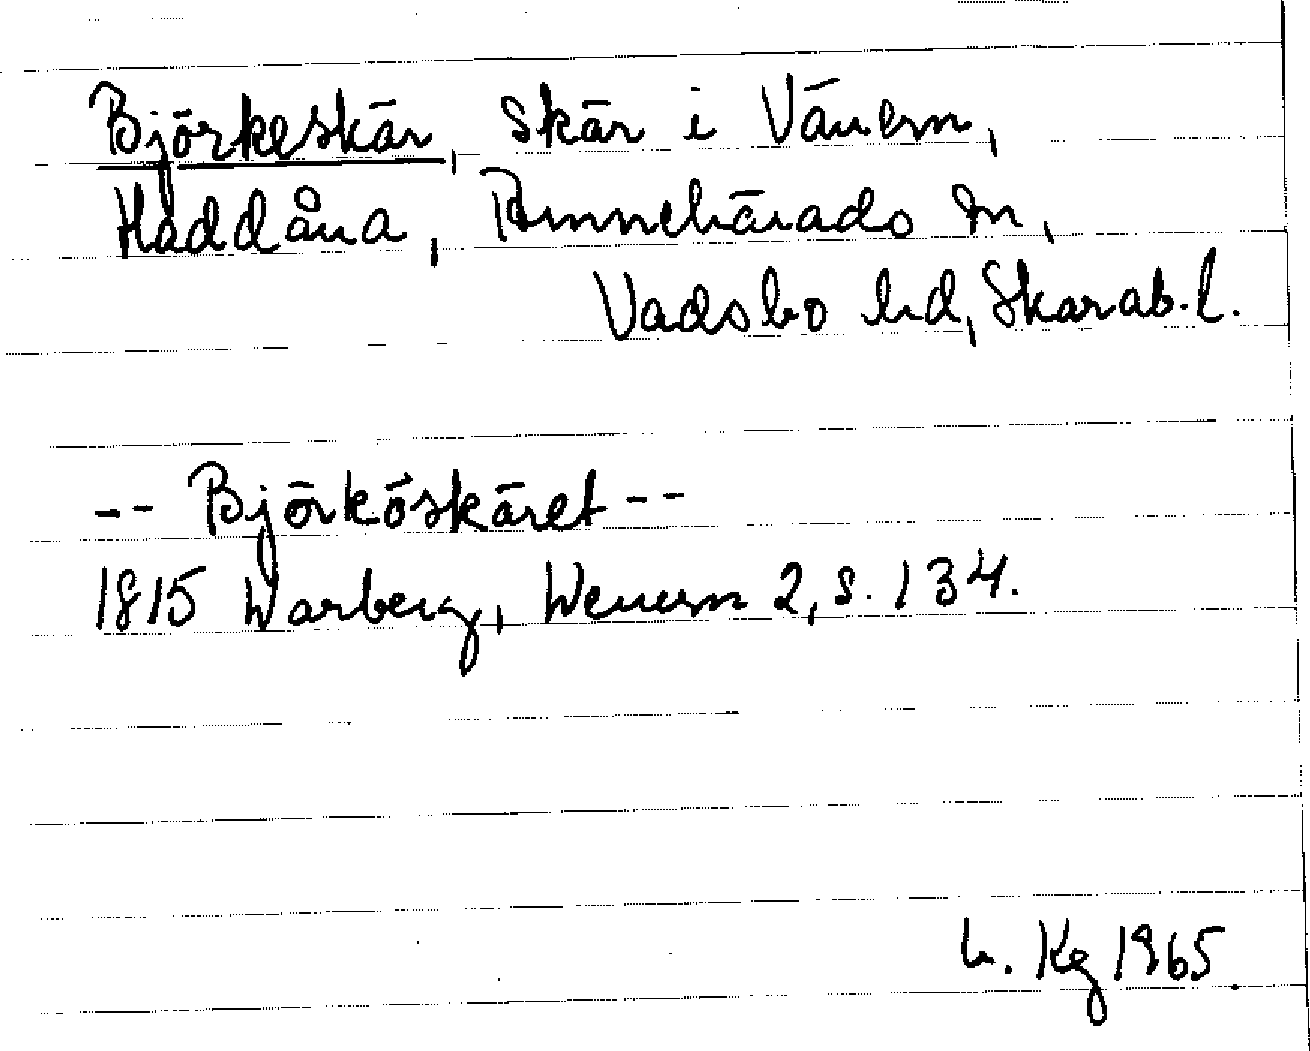 Björkeskär, skär i Vänern,
Haddåna, Binnebärads sn,
Vadsbo hd, Skarab. l.
-- Björköskäret --
1815 Warberg, Wenern 2, s. 134.
Kg 1965.